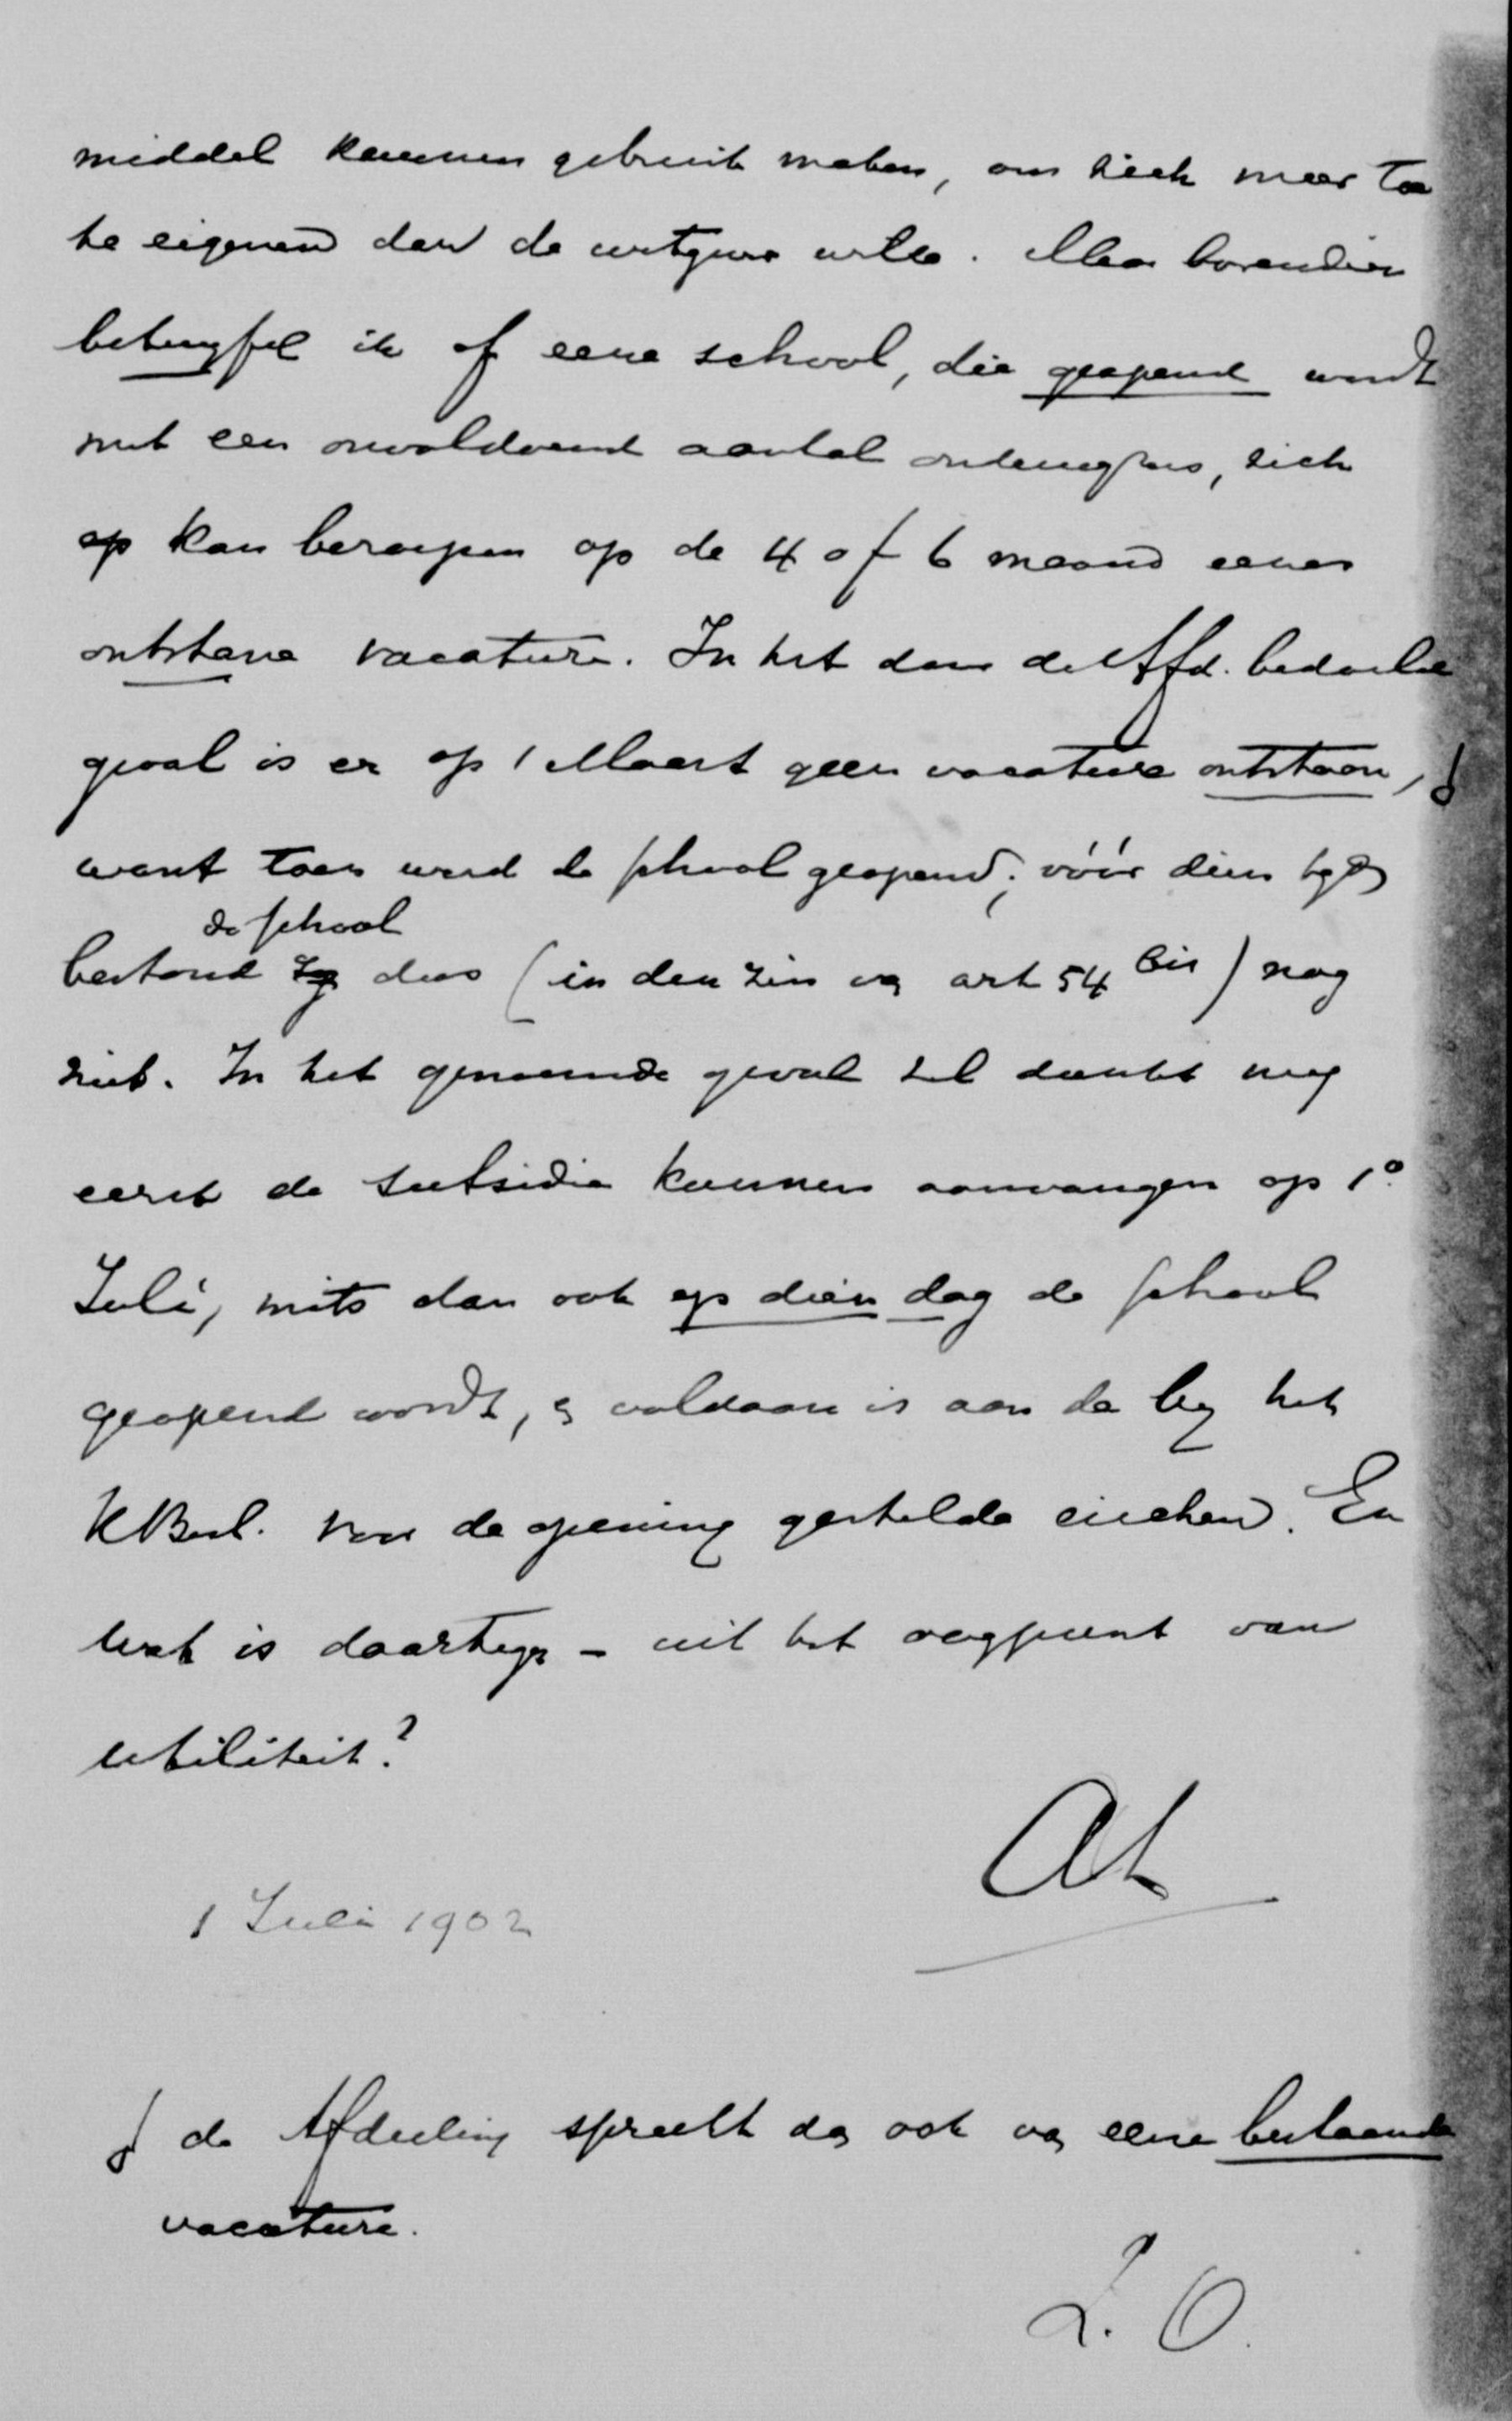 middel kunnen gebruik maken, om zich meer toe
te eigenen dan de wetgever wilde. Maar bovendien
betwyfel ik of eene school, die geopend wordt
met een onvoldoend aantal onderwyzers, zich
op kan beroepen op de 4 of 6 maand eener
ontstane vacature. In het door de Afd. bedoelde
geval is er op 1 Maart geen vacature ontstaan,
want toen werd de school geopend; vóór dien tyd
de school
bestond zy dus (in den zin van art 54 bis) nog
niet. In het genoemde geval zal dunkt my
eerst de subsidie kunnen aanvangen op 1o
Juli, mits dan ook op dien dag de school
geopend wordt, en voldaan is aan de by het
KBesl. voor de opening gestelde eischen. En
wat is daartegen - uit het oogpunt van
utiliteit?
1 Juli 1902
de Afdeeling spreekt dan ook van eene bestaande
vacature.
L. O.